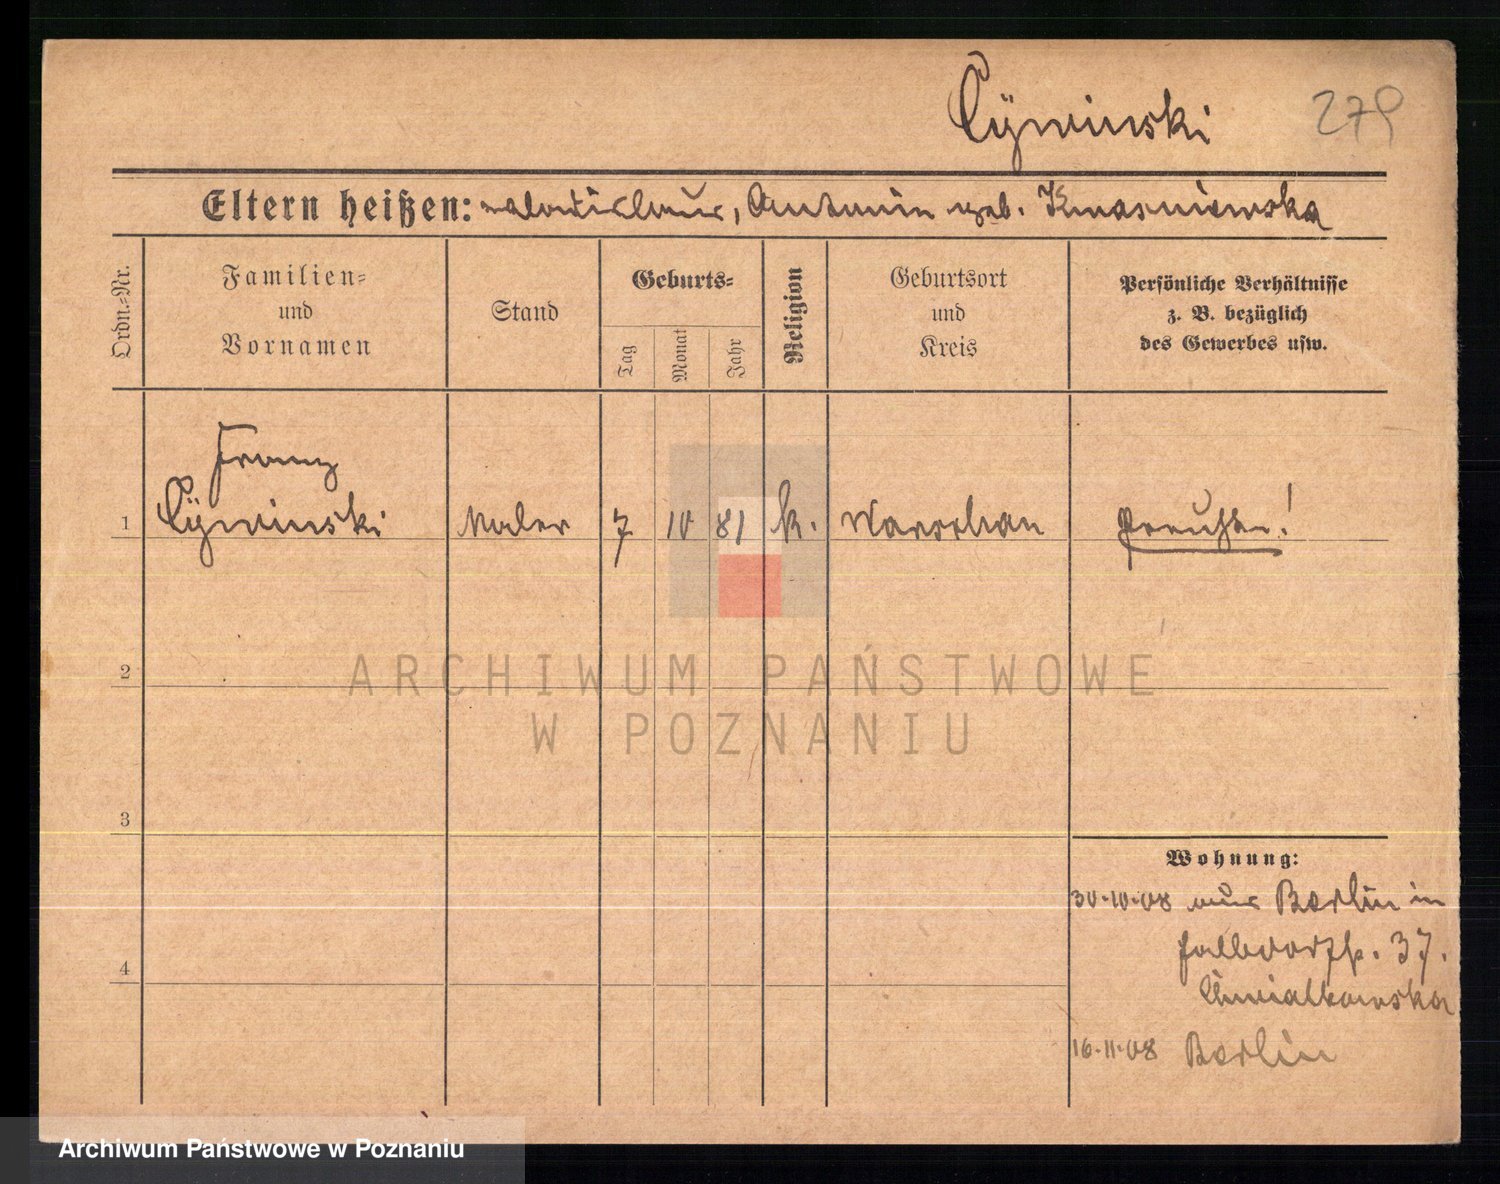 Cÿwinski 279
Eltern heißen: Wladislaus, Antonin geb. Kwasniewska
Ordn.-Nr.
Familien-
und
Vornamen
Stand
Geburts-
Tag
Monat
Jahr
Religion
Geburtsort
und
Kreis
Persönliche Verhältnisse
z. B. bezüglich
des Gewerbes usw.
Franz
1 Cÿwinski Maler 7 10 81 k. Warschau Preuße!
2
ARCHIWUM PAŃSTWOWE
W POZNANIU
3
Wohnung:
30.10.08 aus Berlin in
Halbdorfstr. 37.
Chwialkowska
4
16.11.08 Berlin
Archiwum Państwowe w Poznaniu